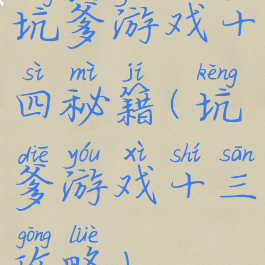 坑爹游戏十
sì mì jí kēng
四秘籍(坑
diē yóu xì shí sān
爹游戏十三
gōng lüè
攻略)